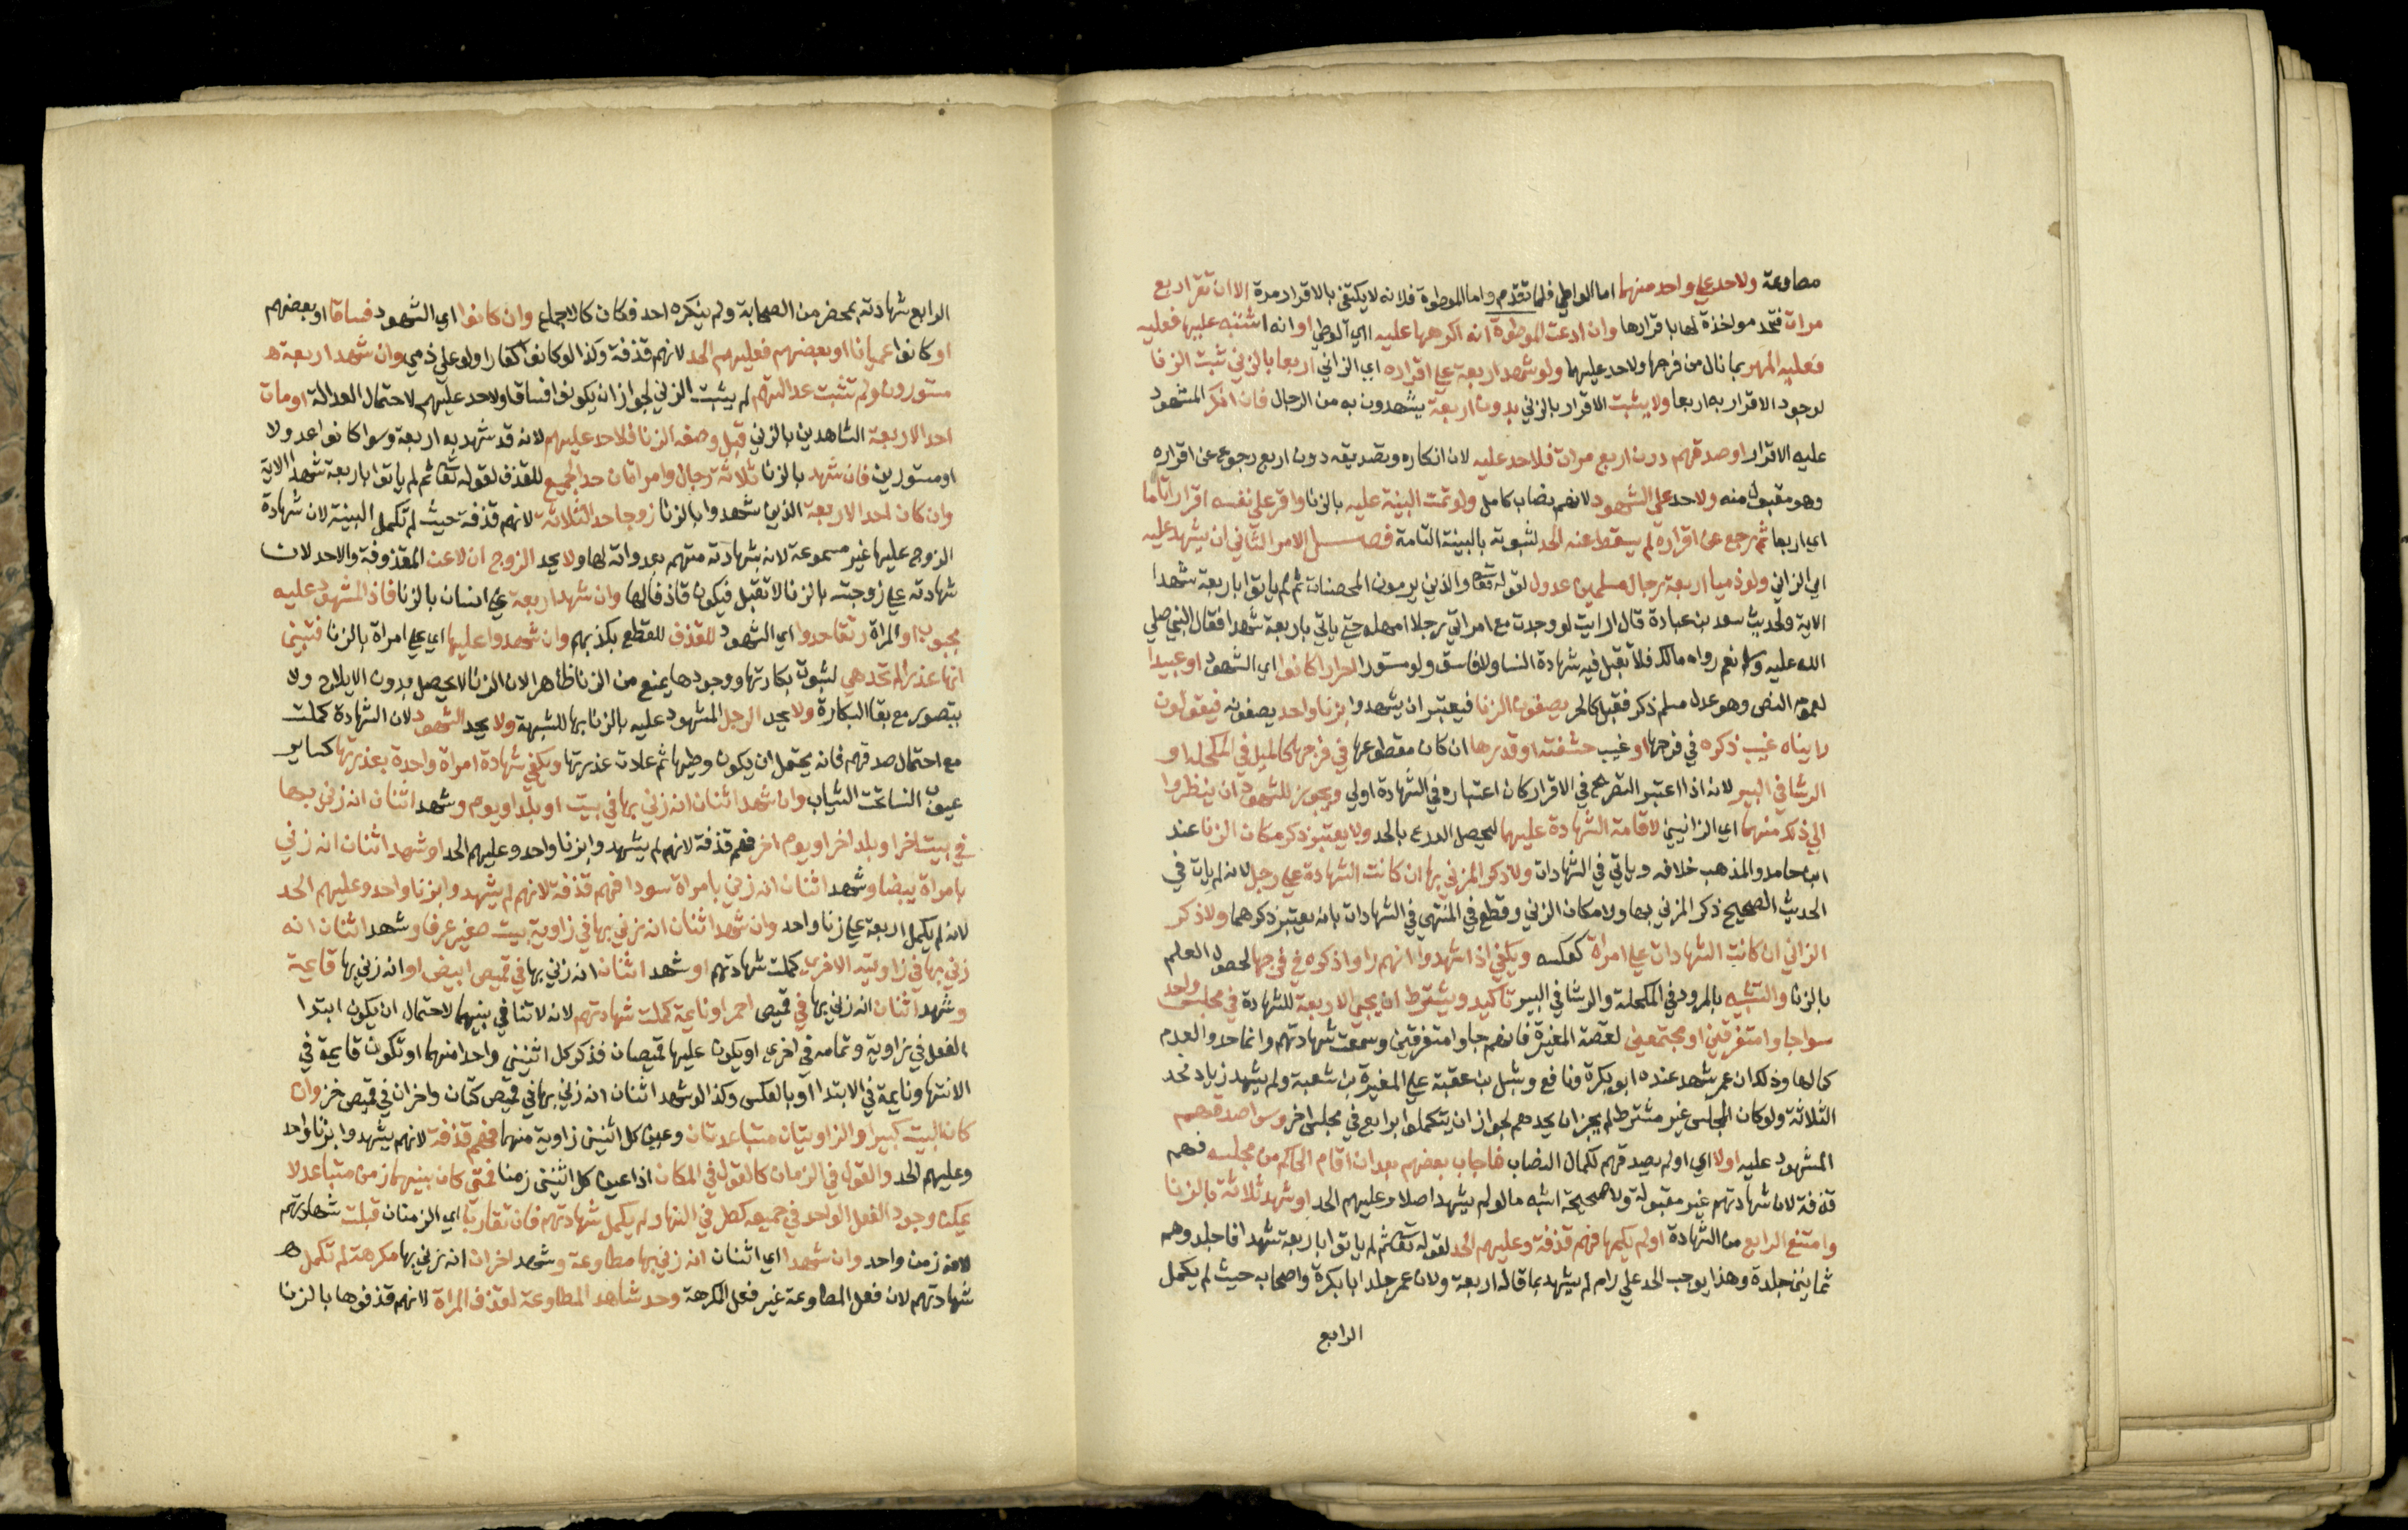 مطاوعة ولا حد علي واحد منهما اما الواطي فلما تقدم واما الموطوة فلانه لا يكتفي بالاقرار مرة الا ان تقر اربع
مرات فتحد مولخذة لها باقرارها وان ادعت الموطوة انه اكرهها عليه اي الوطي او انه اشتبه عليها فعليه
فعليه المهر بما نال من فرجها ولا حد عليهما ولو شهد اربعة علي اقراره اي الزاني اربعا بالزني ثبت الزنا
لوجود الاقرار به اربعا ولا يثبت الاقرار بالزني بدون اربعة يشهدون به من الرجال فان انكر المشهود
عليه الاقرار او صدقهم دون اربع مرات فلا حد عليه لان انكاره وتصديقه دون اربع رجوع عن اقراره
وهو مقبول منه ولا حد علي الشهود لانهم نصاب كامل ولو تمت البينة عليه بالزنا واقر علي نفسه اقرارا تاما
اي اربعا ثم رجع عن اقراره لم يسقط عنه الحد لثبوته بالبينة التامة فصل الامر الثاني ان يشهد عليه
اي الزاني ولو ذميا اربعة رجال مسلمين عدول لقوله تعا والذين يرمون المحصنات ثم لم ياتوا باربعة شهدا
الاية ولحديث سعد بن عبادة قال ارايت لو وجدت مع امراتي رجلا امهله حتي ياتي باربعة شهدا فقال النبي صلي
الله عليه وسلم نعم رواه مالك فلا تقبل فيه شهادة النسا ولا فاسق ولو مستورا احرارا كانوا اي الشهود او عبيدا
لعموم النص وهو عدل مسلم ذكر فقبل كالحر يصفون الزنا فيعتبر ان يشهدوا بزنا واحد يصفونه فيقولون
رايناه غيب ذكره في فرجها او غيب حشفته او قدرها ان كان مقطوعها في فرجها كالميل في المكحلة او
الرشا في البير لانه اذا اعتبر التصريح في الاقرار كان اعتباره في الشهادة اولي ويجوز للشهود ان ينظروا
الي ذلك منهما اي الزانيين لاقامة الشهادة عليهما ليحصل الردع بالحد ولا يعتبر ذكر مكان الزنا عند
ابن حامد والمذهب خلافه وياتي في الشهادات ولا ذكر المزني بها ان كانت الشهادة علي رجل لانه لم يات في
الحديث الصحيح ذكر المزني بها ولا مكان الزني وقطع في المنتهي في الشهادات بانه يعتبر ذكرهما ولا ذكر
الزاني ان كانت الشهادات علي امراة كعكسه ويكفي اذا شهدوا انهم راوا ذكره في فرجها لحصول العلم
بالزنا والتشبيه بالمرود في المكحلة والرشا في البير تاكيد ويشترط ان يجي الاربعة للشهادة في مجلس واحد
سوا جاوا متفرقين او مجتمعين لقصة المغيرة فانهم جاوا متفرقين وسمعت شهادتهم وانما حدوا لعدم
كمالها وذلك ان عمر شهد عنده ابو بكرة ونافع وشبل بن عقبة علي المغيرة بن شعبة ولم يشهد زياد فحد
الثلاثة ولو كان المجلس غير مشترط لم يجز ان يحدهم لجواز ان يتكملوا برابع في مجلس اخر وسوا صدقهم
المشهود عليه اولا اي او لم يصدقهم لكمال النصاب فان جا بعضهم بعد ان اقام الحاكم من مجلسه فهم
قذفة لان شهادتهم غير مقبولة ولا صحيحة اشبه ما لو لم يشهد اصلا وعليهم الحد او شهد ثلاثة بالزنا
وامتنع الرابع من الشهادة او لم يكملها فهم قذفة وعليهم الحد لقوله تعا ثم لم ياتوا باربعة شهدا فاجلدوهم
ثمانين جلدة وهذا يوجب الحد علي رام لم يشهد بما قاله اربعة ولان عمر جلد ابا بكرة واصحابه حيث لم يكمل
الرابع
الرابع شهادته بمحضر من الصحابة ولم ينكره احد فكان كالاجماع وان كانوا اي الشهود فساقا او بعضهم
او كانوا عميانا او بعضهم فعليهم الحد لانهم قذفة وكذا لو كانوا كفارا ولو علي ذمي وان شهد اربعة
مستورون ولم تثبت عدالتهم لم يثبت الزني لجواز ان يكونوا فساقا ولا حد عليهم لاحتمال العدالة او مات
احد الاربعة الشاهدين بالزني قبل وصفه الزنا فلا حد عليهم لانه قد شهد به اربعة وسوا كانوا عدولا
او مستورين فان شهد بالزنا ثلاثة رجال وامراتان حد الجميع للقذف لقوله تعا ثم لم ياتوا باربعة شهدا الاية
وان كان احد الاربعة الذين شهدوا بالزنا زوجا حد الثلاثة لانهم قذفة حيث لم تكمل البينة لان شهادة
الزوج عليها غير مسموعة لانه بشهادته متهم بعدوانه لها ولا يحد الزوج ان لاعن المقذوفة والا حد لان
شهادته علي زوجته بالزنا لا تقبل فيكون قاذفا لها وان شهد اربعة علي انسان بالزنا فاذا المشهود عليه
مجبوب او المراة رتقا حدوا اي الشهود للقذف للقطع بكذبهم وان شهدوا عليها اي علي امراة بالزنا فتبين
انها عذرا لم تحد هي لثبوت بكارتها ووجودها يمنع من الزنا ظاهرا لان الزنا لا يحصل بدون الايلاج ولا
يتصور مع بقا البكارة ولا يحد الرجل المشهود عليه بالزنا بها للشبهة ولا يحد الشهود لان الشهادة كملت
مع احتمال صدقهم فانه يحتمل ان يكون وطيها ثم عادت عذرتها وتكفي شهادة امراة واحدة بعذرتها كساير
عيوب النسا تحت الثياب وان شهد اثنان انه زني بها في بيت او بلد او يوم وشهد اثنان انه زني بها
في بيت اخر او بلد اخر او يوم اخر فهم قذفة لانهم لم يشهدوا بزنا واحد وعليهم الحد او شهد اثنان انه زني
بامراة بيضا وشهد اثنان انه زني بامراة سودا فهم قذفة لانهم لم يشهدوا بزنا واحد وعليهم الحد
لانه لم يكمل اربعة علي زنا واحد وان شهد اثنان انه زني بها في زاوية بيت صغير عرفا وشهد اثنان انه
زني بها في زاويته الاخري كملت شهادتهم او شهد اثنان انه زني بها في قميص ابيض او انه زني بها قايمة
وشهد اثنان انه زني بها في قميص احمر او نايمة كملت شهادتهم لانه لا تنافي بينهما لاحتمال ان يكون ابتدا
الفعل في زاوية وتمامه في اخري او يكون عليها قميصان فذكر كل اثنين واحدا منهما او تكون قايمة في
الانتها ونايمة في الابتدا او بالعكس وكذا لو شهد اثنان انه زني بها في قميص كتان واخران في قميص خز وان
كان البيت كبيرا والزاويتان متباعدتان وعين كل اثنين زاوية منهما فهم قذفة لانهم لم يشهدوا بزنا واحد
وعليهم الحد والقول في الزمان كالقول في المكان اذا عين كل اثنين زمنا فمتي كان بينهما زمن متباعد لا
يمكن وجود الفعل الواحد في جميعه كطرفي النهار لم يكمل شهادتهم فان تقاربا اي الزمنان قبلت شهادتهم
لانه زمن واحد وان شهدا اي اثنان انه زني بها مطاوعة وشهد اخران انه زني بها مكرهة لم تكمل
شهادتهم لان فعل المطاوعة غير فعل المكرهة وحد شاهدا المطاوعة لقذف المراة لانهم قذفوها بالزنا